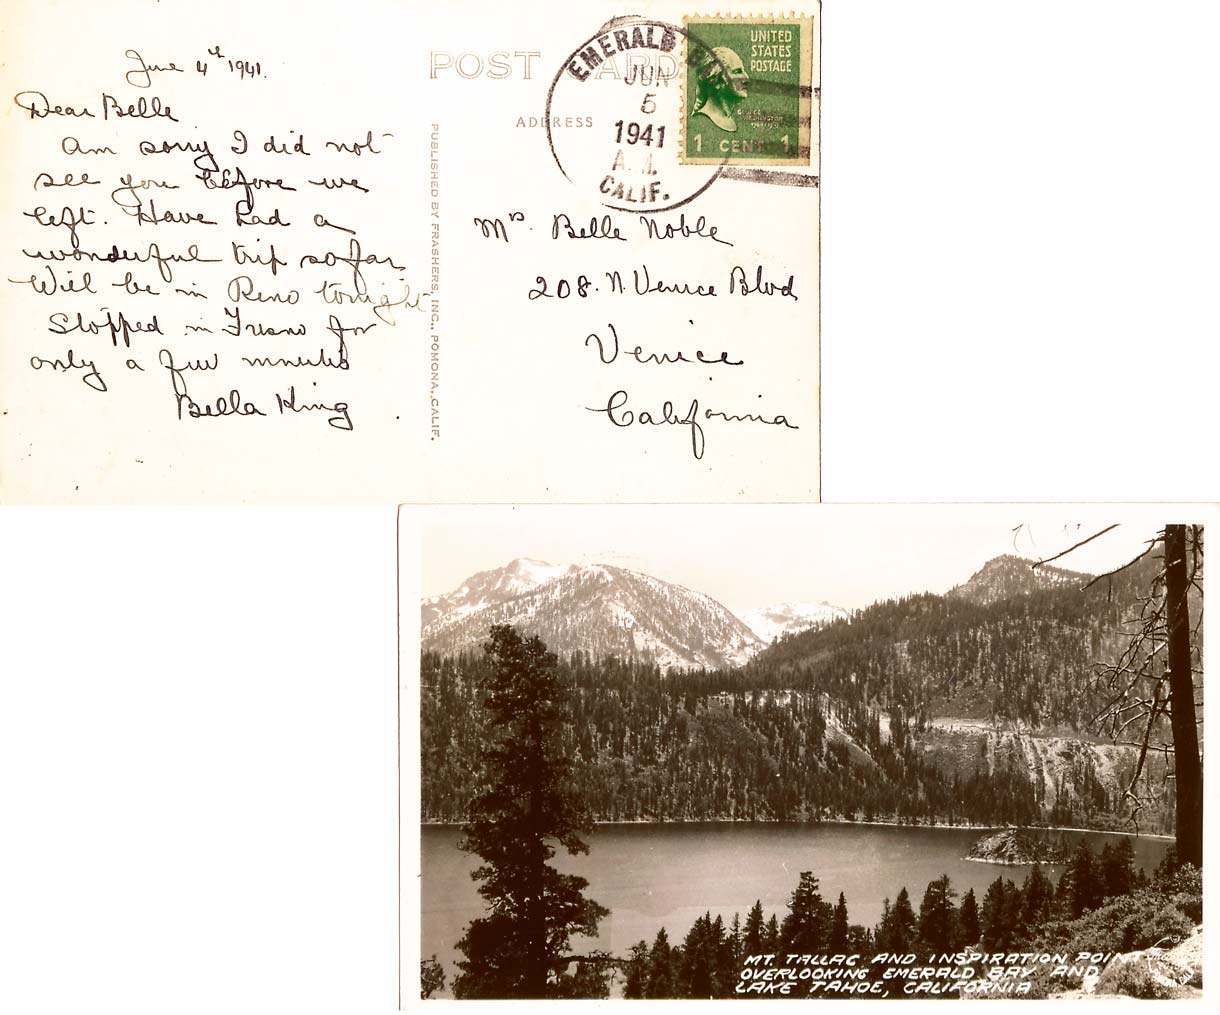 June 4th 1941.
Dear Belle
Am sorry I did not
see you before we
left. Have had a
wonderful trip so far
Will be in Reno tonight
Stopped in Fresno for
only a few minutes
Bella King
POST CARD
ADDRESS
PUBLISHED BY FRASHERS, INC., POMONA, CALIF.
EMERALD BAY
JUN
5
1941
A.M.
CALIF.
UNITED
STATES
POSTAGE
GEORGE
WASHINGTON
1 CENT 1
Mrs. Belle Noble
208. N. Venice Blvd
Venice
California
MT. TALLAC AND INSPIRATION POINT
OVERLOOKING EMERALD BAY AND
LAKE TAHOE, CALIFORNIA